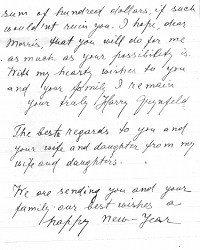 sum of hundred dollars, if such
wouldn't ruin you. I hope dear
Morris, that you will do for me
as much as your possibility is.
With my hearty wishes to you
and your family I remain
your truly Harry
The bests regards to you and
your wife and daughter from my
wife and daughters.
We are sending you and your
family our best wishes a
happy New-Year